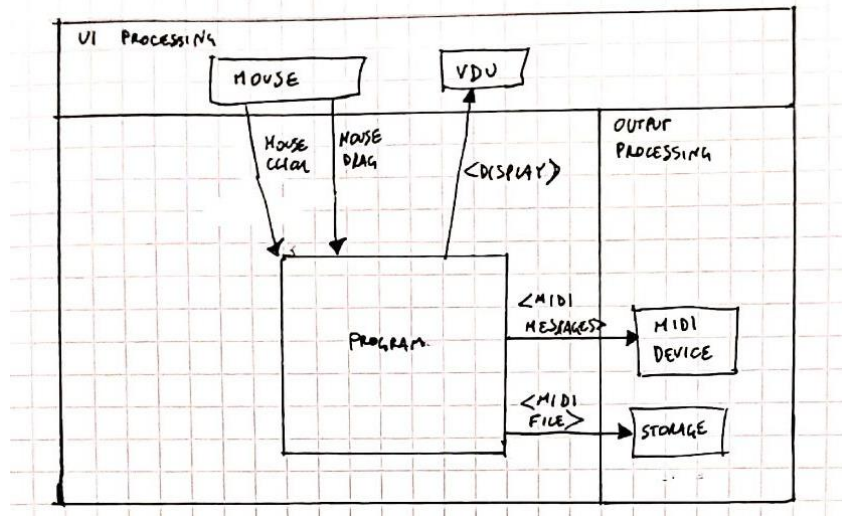 UI PROCESSING
MOUSE
VDU
MOUSE
CLICK
MOUSE
DRAG
<DISPLAY>
OUTPUT
PROCESSING
PROGRAM
<MIDI
MESSAGES>
MIDI
DEVICE
<MIDI
FILE>
STORAGE